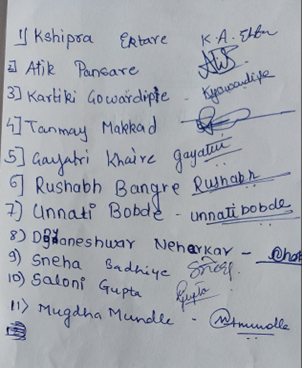 1) Kshipra Ektare K. A. Ektare
2] Atik Pansare
3] Kartiki Gowardipe Kgowardipe
4] Tanmay Makkad
5] Gayatri Khaire gayatri
6] Rushabh Bangre Rushabh
7) Unnati Bobde - unnatibobde
8) Dnyaneshwar Neharkar -
9) Sneha Badhiye Sneha
10) Saloni Gupta Gupta
11) Mugdha Mundle - mundle